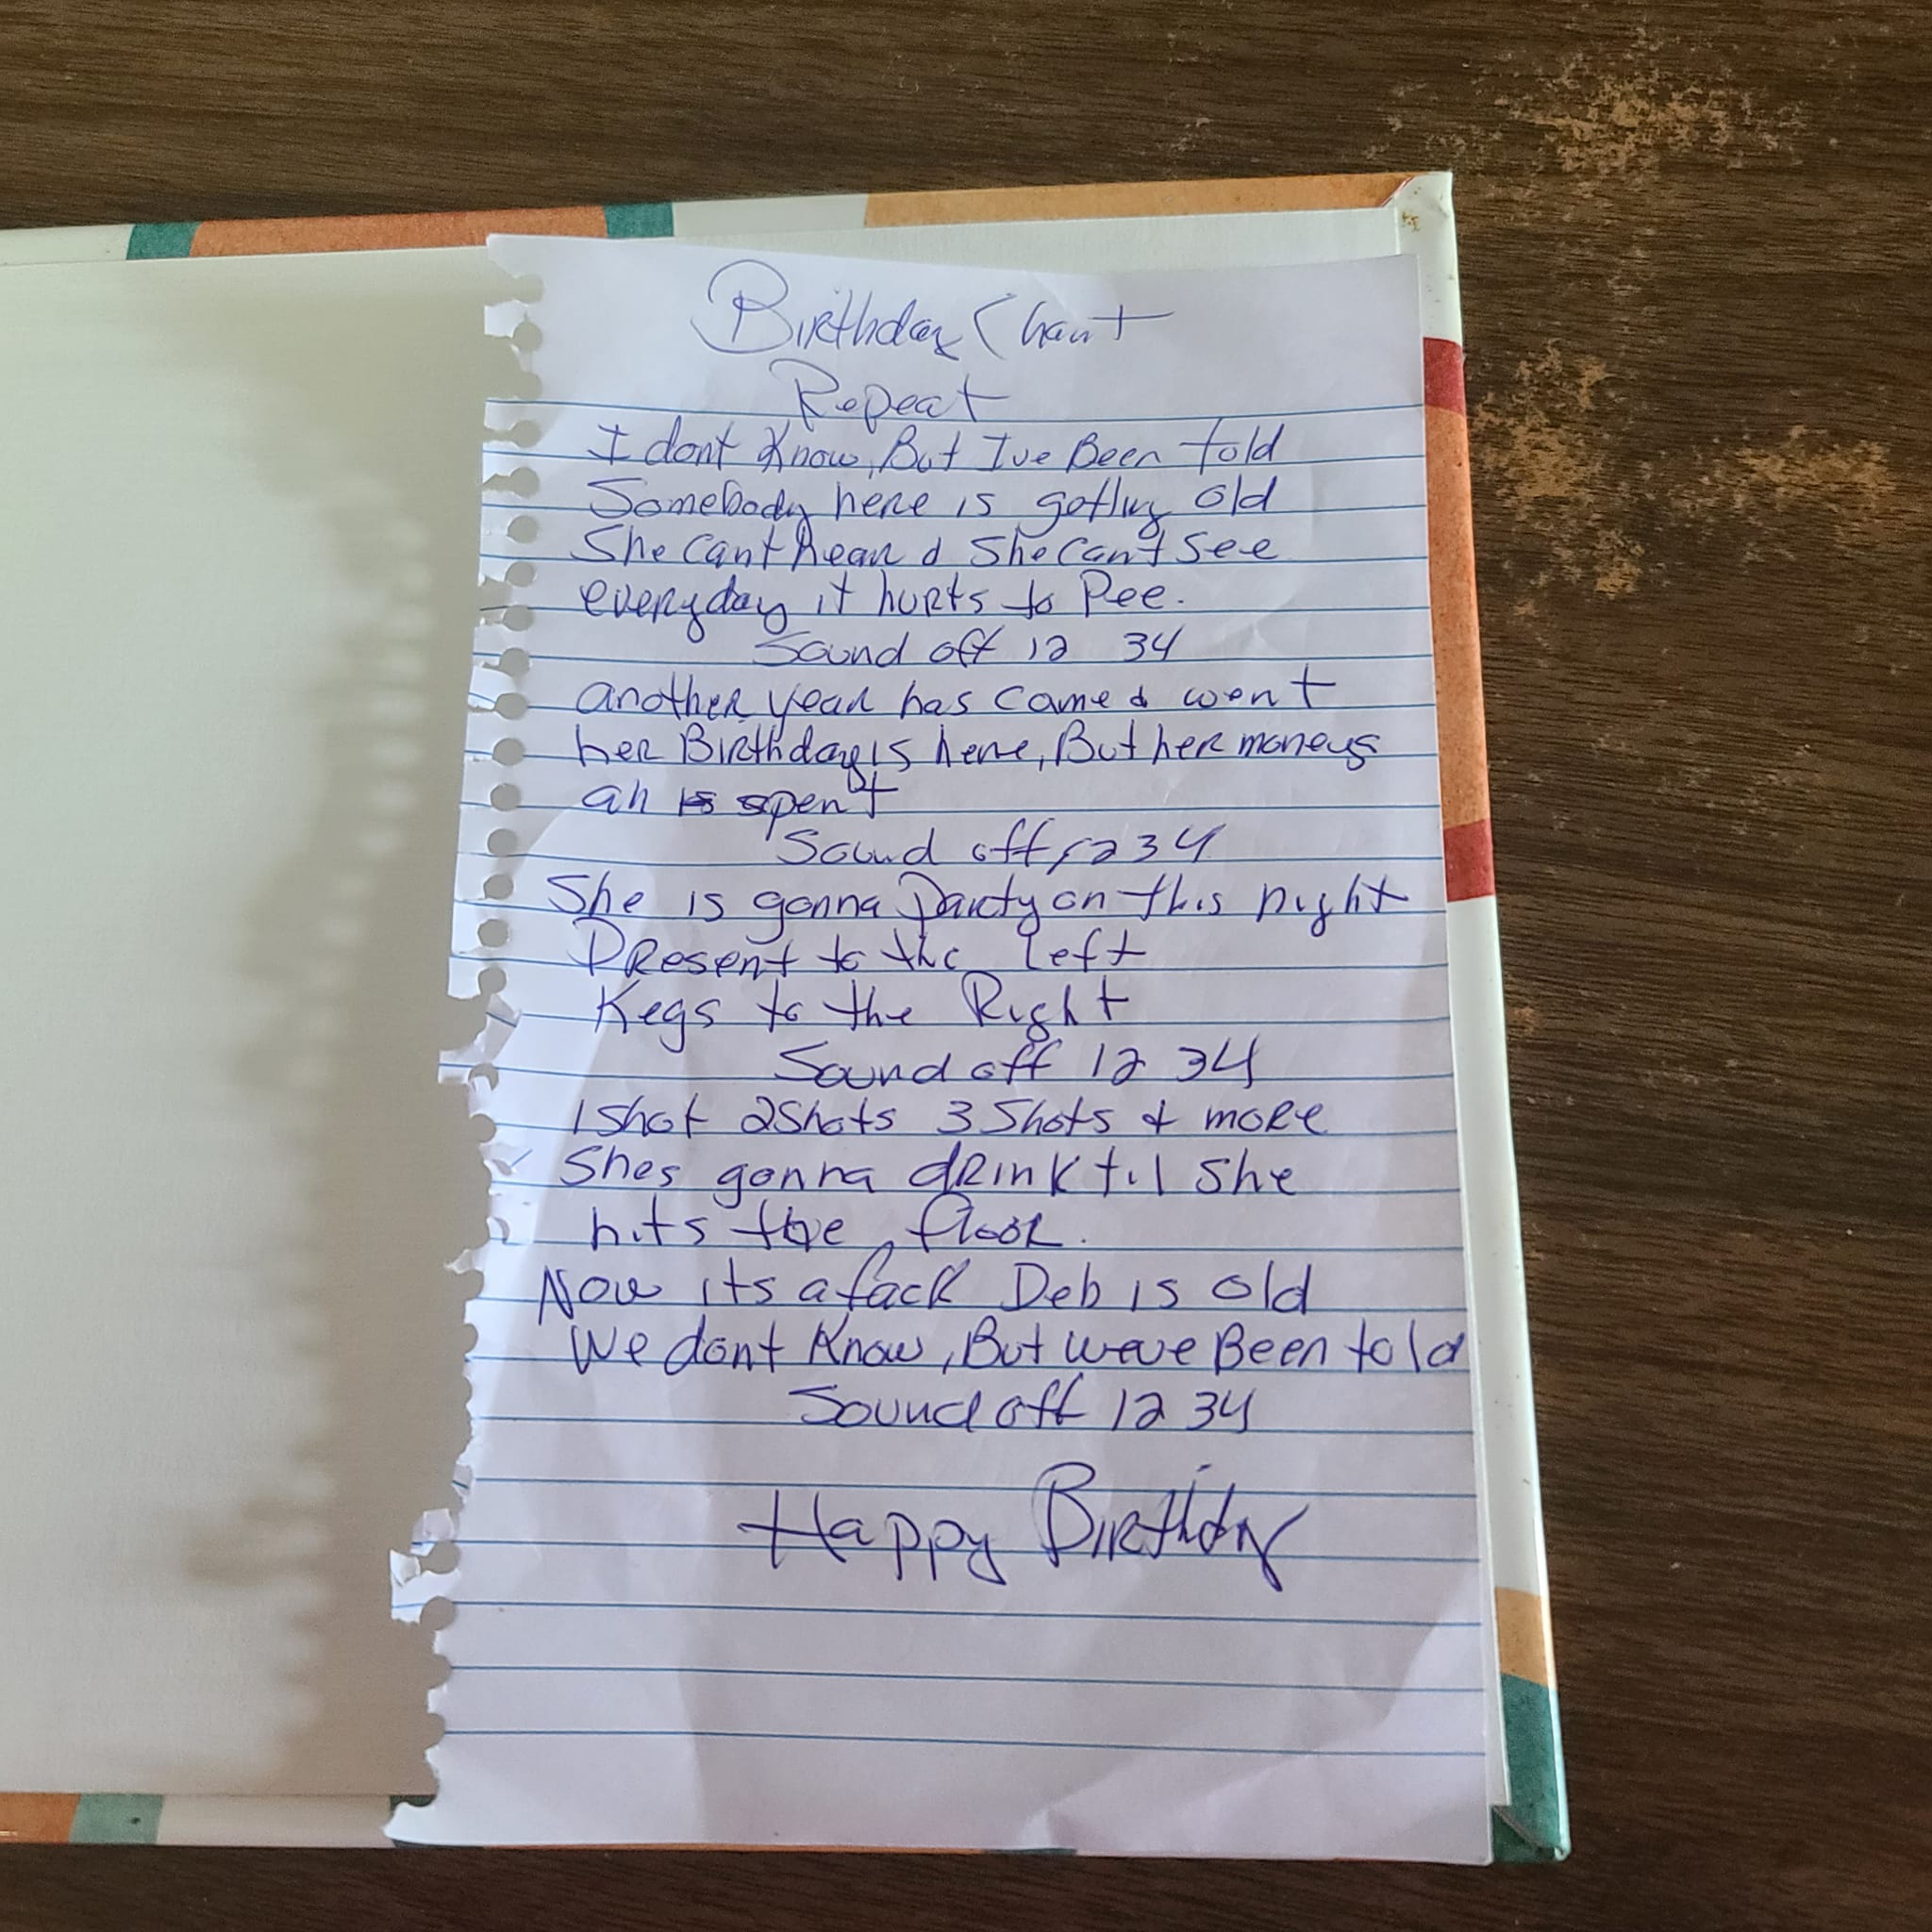 Birthday Chant
Repeat
I dont Know, But Ive Been told
Somebody here is getting old
She cant hear & she can't see
everyday it hurts to Pee.
Sound off 12 34
another year has come & went
her Birthday is here, But her moneys
all is spent
Sound off 1234
She is gonna Party on this night
Present to the left
Kegs to the Right
Sound off 12 34
1 Shot 2 Shots 3 Shots & more
Shes gonna drink til she
hits the floor.
Now its a fack Deb is old
We dont Know, But weve Been told
Sound off 12 34
Happy Birthday